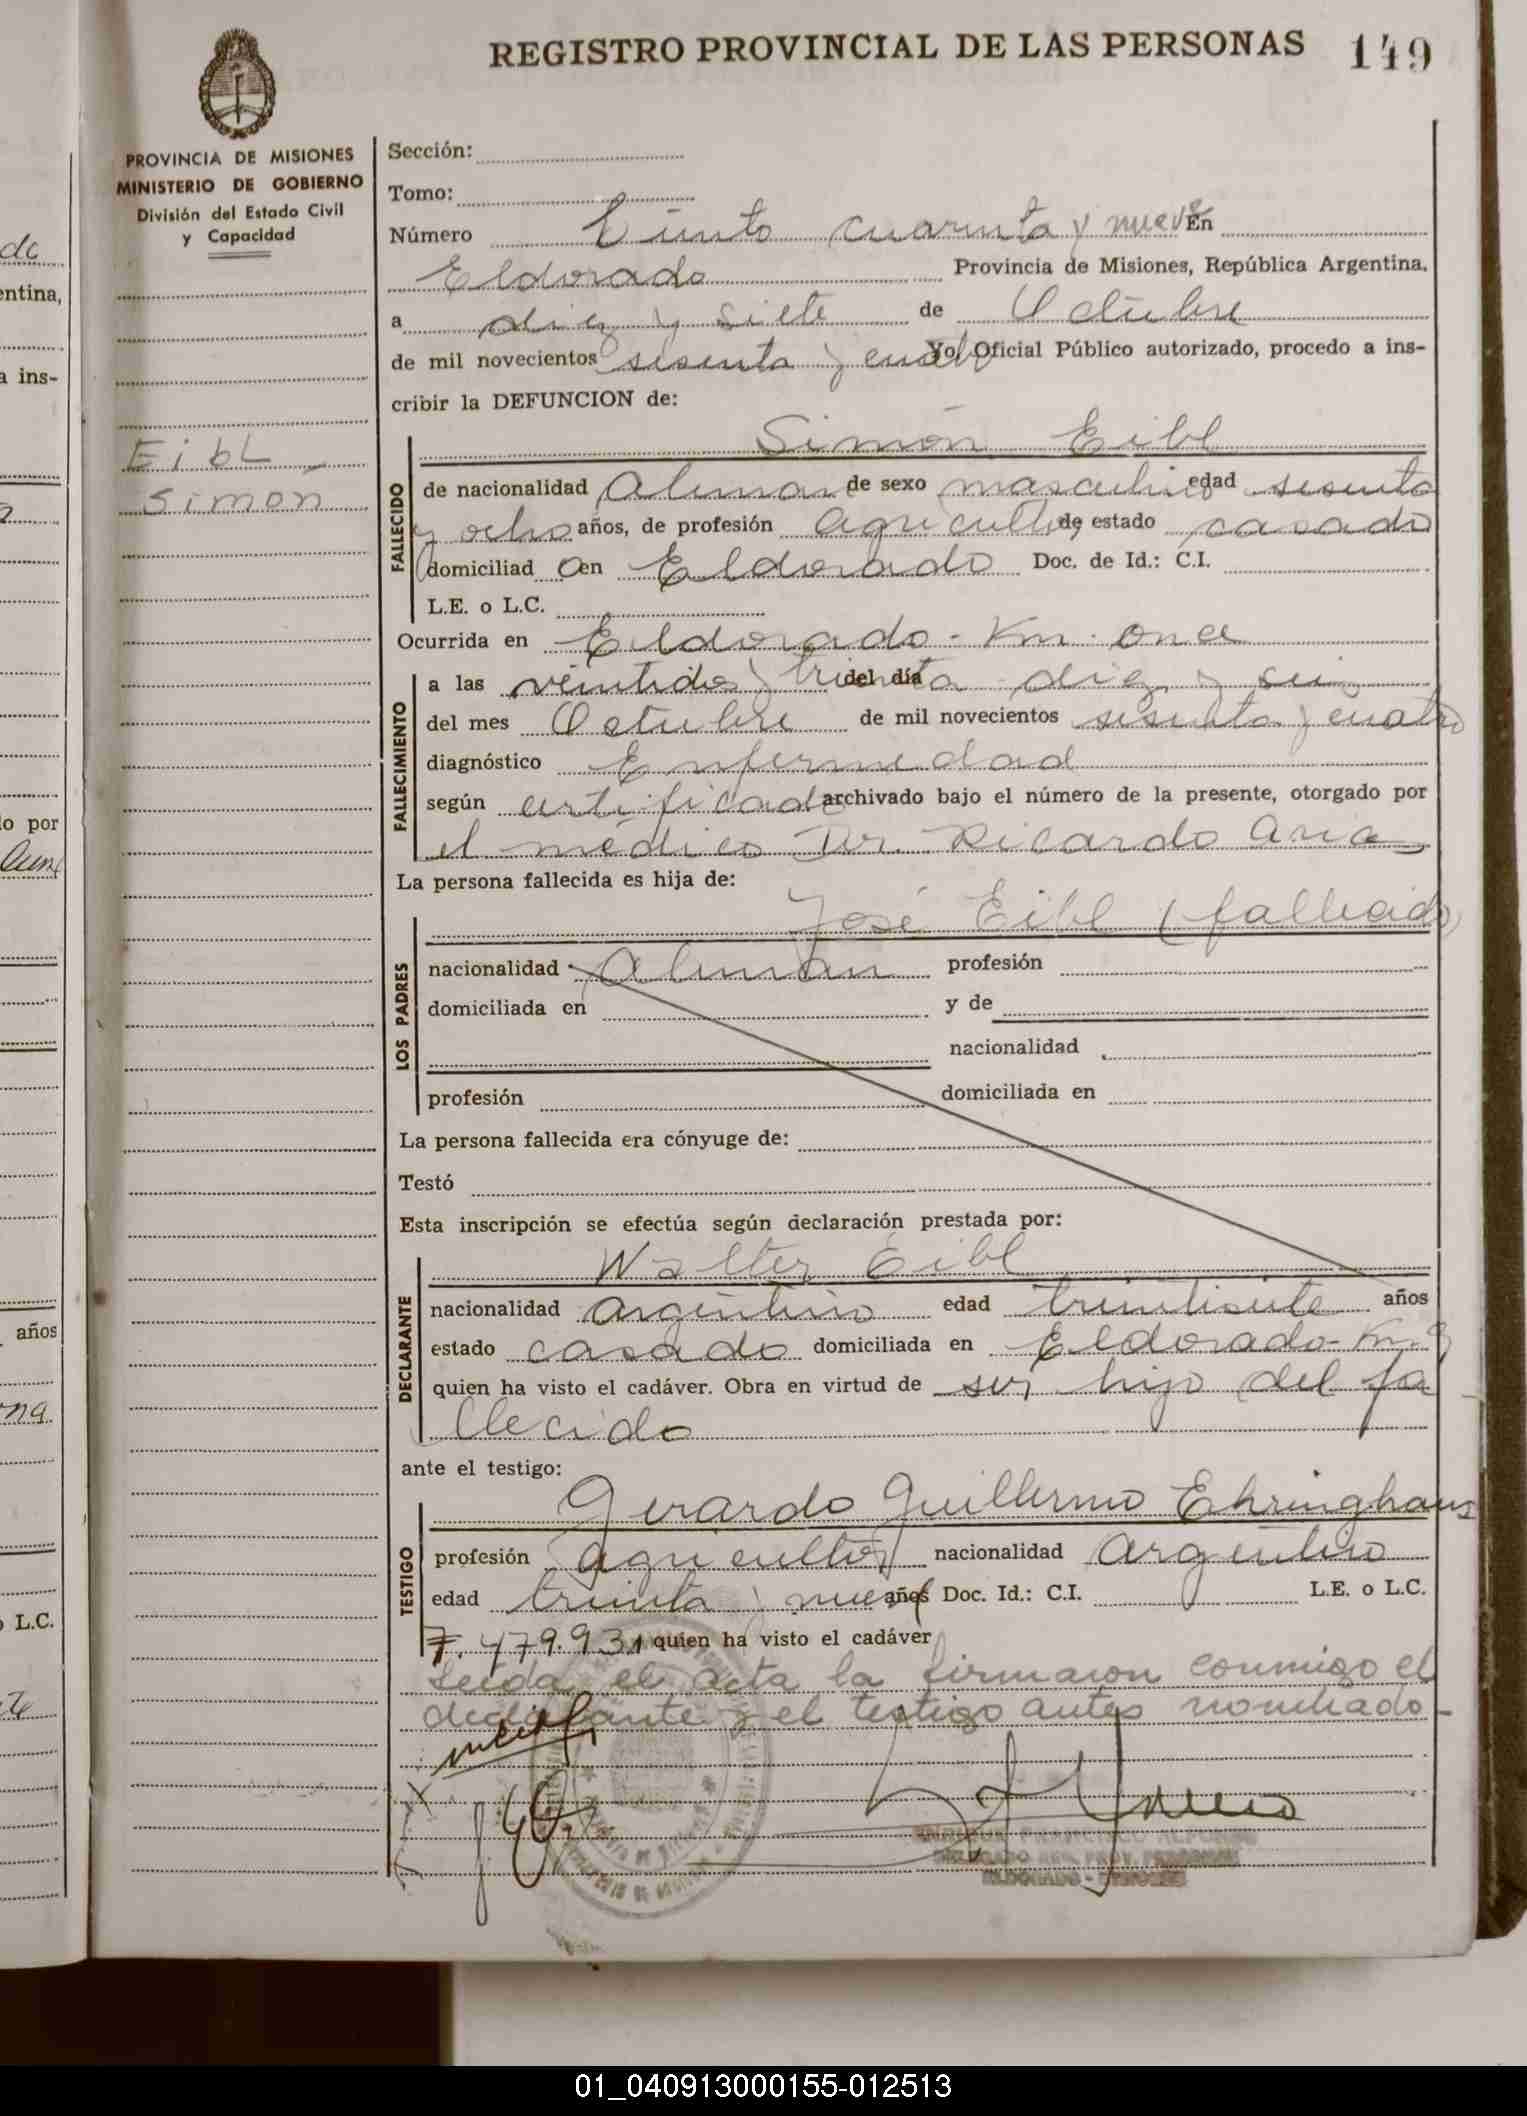 REGISTRO PROVINCIAL DE LAS PERSONAS 149
PROVINCIA DE MISIONES
MINISTERIO DE GOBIERNO
División del Estado Civil
y Capacidad
Eibl
Simón
Sección:
Tomo:
Número Ciento cuarenta y nueve En
Eldorado Provincia de Misiones, República Argentina.
a diez y siete de Octubre
de mil novecientos sesenta y cuatro Yo, Oficial Público autorizado, procedo a ins-
cribir la DEFUNCION de:
Simón Eibl
FALLECIDO
de nacionalidad Aleman de sexo masculino edad sesenta
y ocho años, de profesión agricultor de estado casado
domiciliad o en Eldorado Doc. de Id.: C.I.
L.E. o L.C.
Ocurrida en Eldorado - Km. once
FALLECIMIENTO
a las veintidos y treinta del día diez y seis
del mes Octubre de mil novecientos sesenta y cuatro
diagnóstico Enfermedad
según certificado archivado bajo el número de la presente, otorgado por
el médico Dr. Ricardo
La persona fallecida es hija de:
José Eibl (fallecido
LOS PADRES
nacionalidad Aleman profesión
domiciliada en y de
nacionalidad
profesión domiciliada en
La persona fallecida era cónyuge de:
Testó
Esta inscripción se efectúa según declaración prestada por:
Walter Eibl
DECLARANTE
nacionalidad argentino edad treintisiete años
estado casado domiciliada en Eldorado - Km. 9
quien ha visto el cadáver. Obra en virtud de ser hijo del fa
llecido
ante el testigo:
Gerardo Guillermo Ehringhaus
TESTIGO
profesión agricultor nacionalidad argentino
edad treinta y nueve años Doc. Id.: C.I. L.E. o L.C.
7.479.931 quien ha visto el cadáver
Leida el acta la firmaron conmigo el
declarante y el testigo antes nombrado-
ELDORADO - MISIONES
de
entina,
a ins-
o por
años
o L.C.
01_040913000155-012513